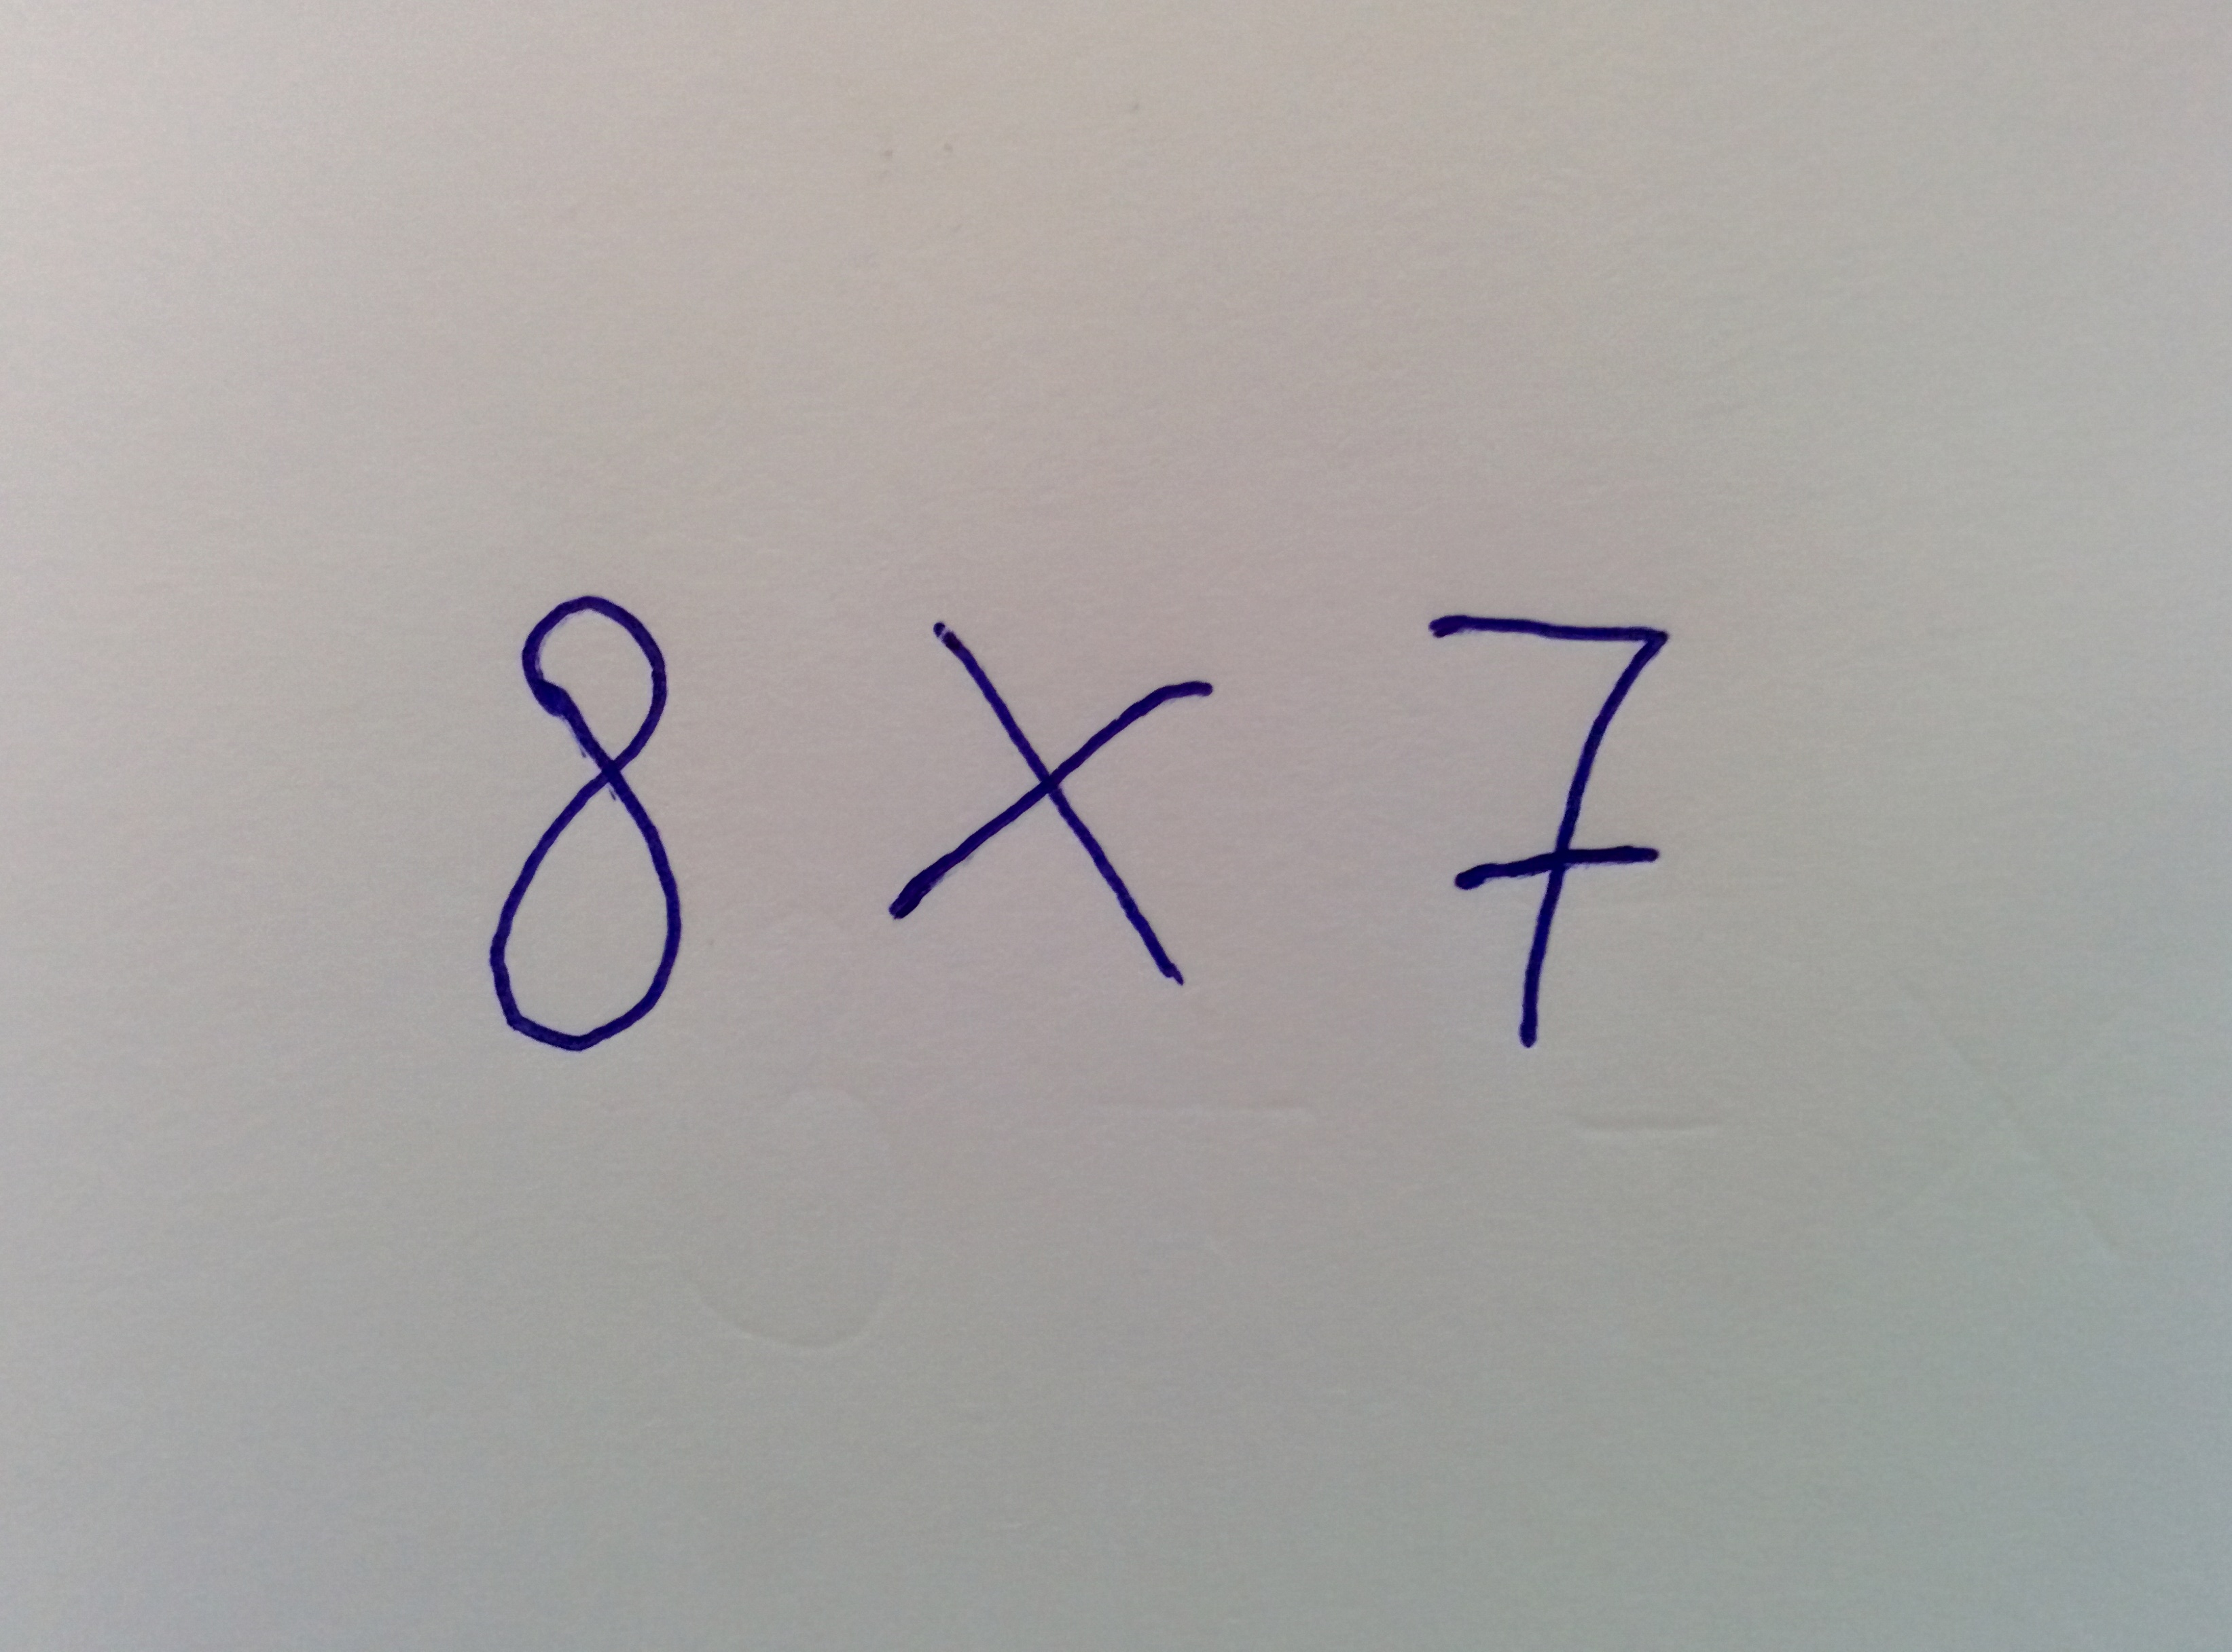 8 × 7